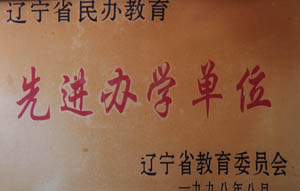 辽宁省民办教育
先进办学单位
辽宁省教育委员会
一九九八年八月